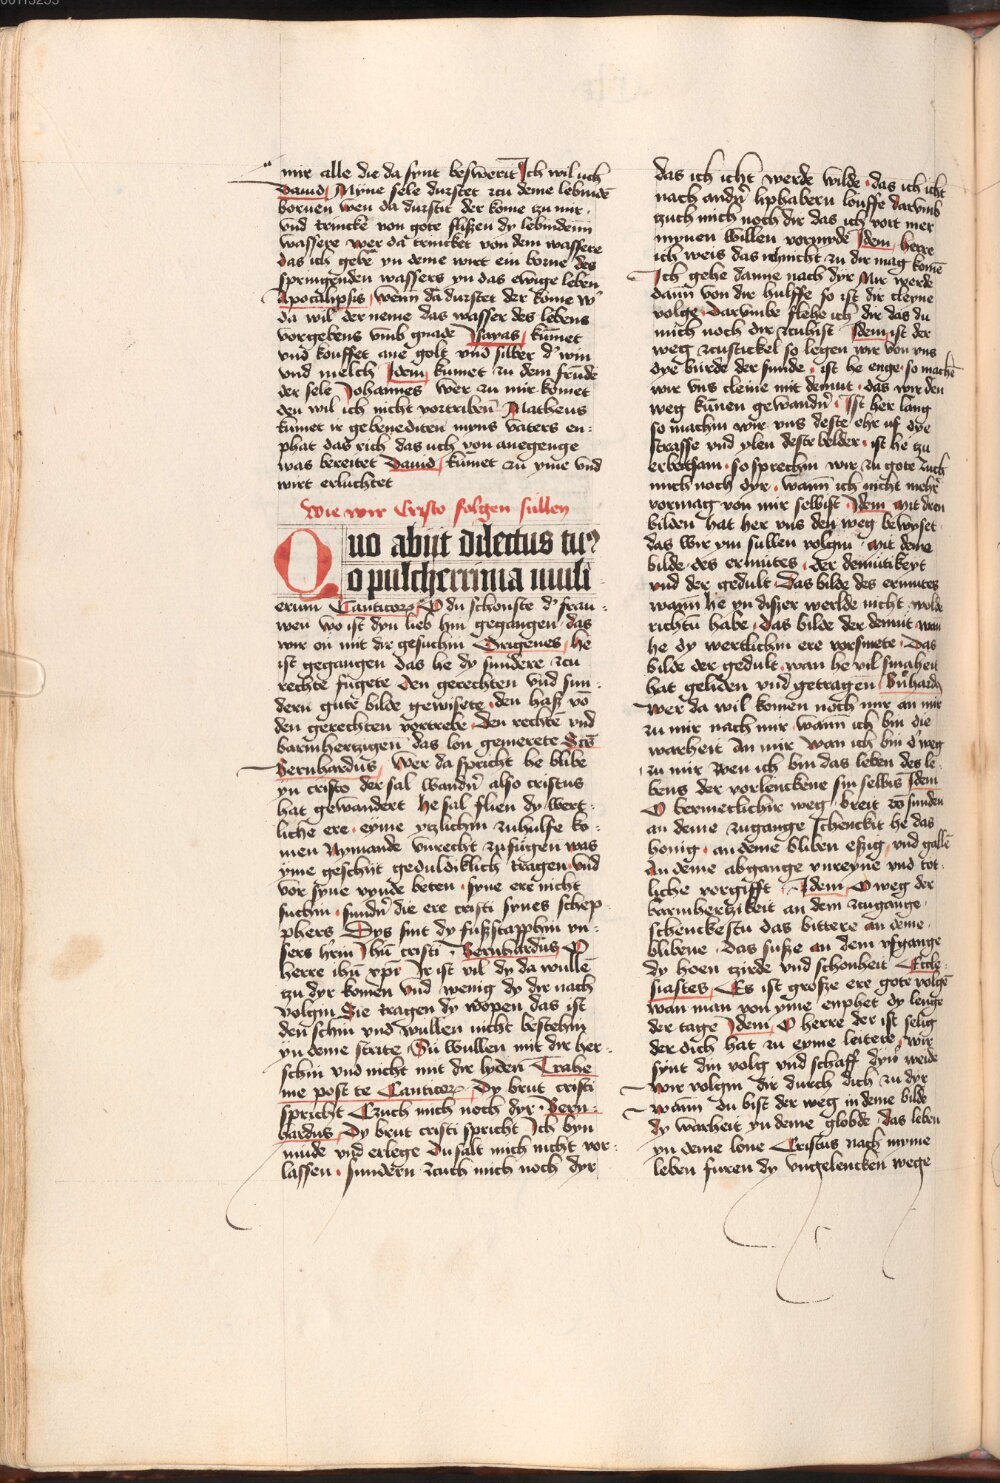 mir alle die da synt beswerit Ich wil uch
Dauid Myne sele durstet czu deme lebinde
bornen wen da durstit der kome tzu mir
vnd trincke von gote flißen dy lebindenn
wassere wer da trincket von dem wassere
das ich gebe yn deme wirt ein borne des
springenden wassers yn das ewige leben
Apocalipsis wenn da durstet der kome w'
da wil der neme das wasser des lebens
vorgebens vmb gnade Isayas kumet
vnd kouffet ane golt vnd silber d' win
vnd melch Idem kumet zu dem frunde
der sele Johannes wer zu mir komet
den wil ich nicht vortriben Matheus
kumet ir gebenediten myns vaters en-
phat das rich das uch von anegenge
was bereitet Dauid kumet zu yme vnd
wirt erluchtet
Wie wir Cristo folgen sullen
Quo abijt dilectus tu9
o pulcherrima muli
erum Canticorum O du schonste d' frau-
wen wo ist dyn lieb hin gegangen das
wir on mit dir gesuchin Origenes he
ist gegangen das he dy sundere czu
rechte fugete den gerechten vnd sun-
dern gute bilde gewisete den haß vo
den gerechten vortrebe Den rechte vnd
barmhertzigen das lon gemerete Scs
Bernhardus Wer da spricht he blibe
yn cristo der sal wandn also cristus
hat gewandert he sal flien dy wert-
liche ere eyme ytzlichin zuhulfe ko-
men Nymande vnrecht zufugen was
yme geschit geduldiklich tragen vnd
vor syne vynde beten syne ere nicht
suchin sundn die ere cristi synes schep-
phers Dys sint dy fußstapphin vn-
sers hrin Jhu cristi Bernhardus O
herre ihu xpe Ir ist vil dy da wulle
tzu dyr komen vnd wenig dy dir nach
volgin Sie tragen dy wopen das ist
den schin vnd wullen nicht bestehin
yn deme strite Sij wullen mit dir her-
schin vnd nicht mit dir lyden Trahe
me post te Canticorum Dy brut cristi
spricht Czuch mich noch dyr Bern-
hardus Dy brut cristi spricht Ich byn
mude vnd erlege Du salt mich nicht vor-
lassen sundern zcuch mich noch dyr
das ich icht werde wilde das ich icht
nach andn liphabern louffe darvmb
tzuch mich noch dir das ich vort mer
mynen willen vormyde Idem herre
ich weis das nymicht zu dir mag kome
Ich gehe danne nach dyr Mir werde
dann von dir hulffe so ist dir cleyne
volge Darvmbe flehe ich dir das du
mich noch dir zcuhist Idem ist der
weg zcustickel so legen wir von uns
dye burde der sunde ist he enge so mache
wir vns cleine mit demut das wir den
weg kunen gewandn Ist her lang
so machin wir uns deste ehr uf dye
strasse vnd ylen deste belder ist he zu
erbetsam so sprechin wir zu gote zuch
mich noch dyr wann ich nicht mehr
vormag von mir selbist Idem Mit dren
bilden hat her vns den weg bewyset
das wir ym sullen volgin mit deme
bilde des ermutes der demutikeyt
vnd der gedult Das bilde des ermutes
wann he yn diszer werlde nicht wolde
richtu habe Das bilde der demut wan
he dy wertlichin ere vorsmete Das
bilde der gedult wan he vil smaheit
hat geliden vnd getragen Bnhardus
Wer da wil komen noch mir an mir
zu mir nach mir wann ich bin die
warheit An mir Wan ich bin d' weg
zu mir Wen ich bin das leben des le-
bens der vorlenckene sin selbis Idem
O vermetlichir weg breit vo sunden
an deme zugange Schenckit he das
honig an deme bliben eßig vnd galle
An deme abgange vnreyne vnd tot-
liche vorgifft Idem O weg der
barmhertzikeit an dem zcugange
schenckestu das bittere an deme
blibene das suße an dem vsgange
dy hoen tzirde vnd schonheit Eccle-
siastes Es ist grosze ere gote volge
wan man von yme enphet dy lenge
der tage Idem O herre der ist selig
der dich hat zu eyme leitere wir
synt din volg vnd schaff dyn weide
wir volgin dir durch dich zu dyr
wann du bist der weg in deme bilde
dy warheit yn deme globde das leben
yn deme lone Cristus nach myme
leben furen dy vngelencken wege